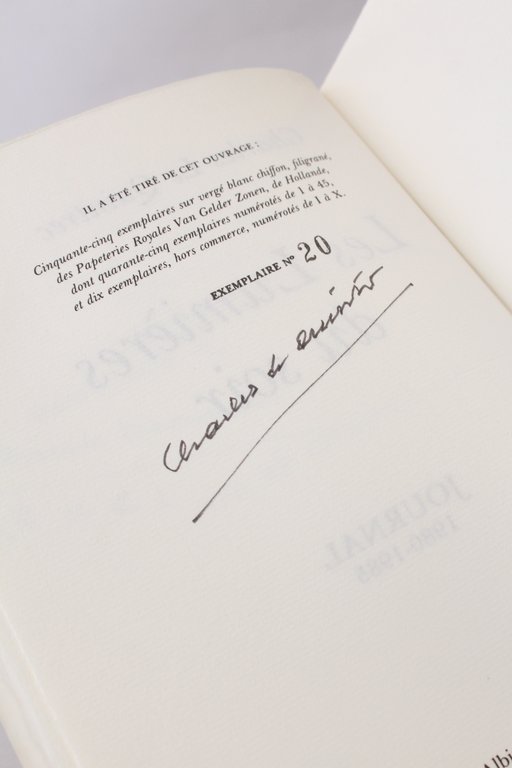 IL A ÉTÉ TIRÉ DE CET OUVRAGE :
Cinquante-cinq exemplaires sur vergé blanc chiffon, filigrané,
des Papeteries Royales Van Gelder Zonen, de Hollande,
dont quarante-cinq exemplaires numérotés de 1 à 45,
et dix exemplaires, hors commerce, numérotés de I à X.
EXEMPLAIRE N° 20
Charles Le Quintrec
Les Lumières
du soir
JOURNAL
1980-1985
Albi